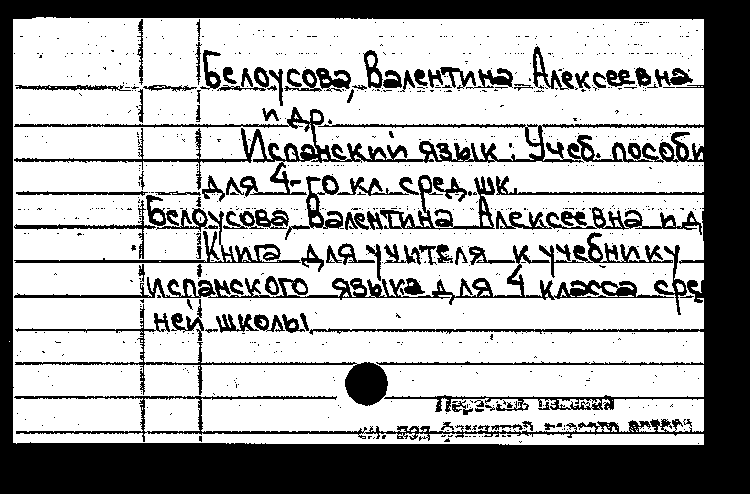 Белоусова, Валентина Алексеевна
и др.
Испанский язык: Учеб. пособи
для 4-го кл. сред. шк.
Белоусова, Валентина Алексеевна и д
Книга для учителя к учебнику
испанского языка для 4 класса сред
ней школы
Перечень изданий
см. под фамилией первого автора